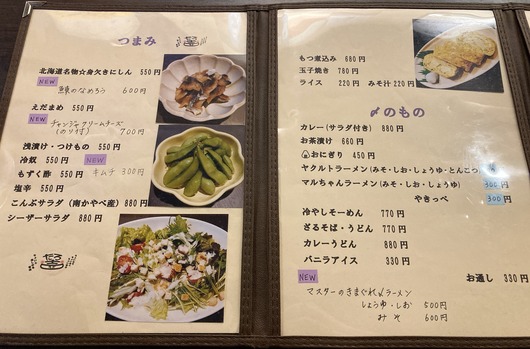 つまみ
北海道名物☆身欠きにしん 550円
NEW
鯵のなめろう 600円
えだまめ 550円
NEW
チャンジャクリームチーズ
(のり付) 700円
浅漬け・つけもの 550円
冷奴 550円
NEW
もずく酢 550円
キムチ 300円
塩辛 550円
こんぶサラダ (南かやべ産) 880円
シーザーサラダ 880円
もつ煮込み 680円
玉子焼き 780円
ライス 220円 みそ汁 220円
〆のもの
カレー(サラダ付き) 880円
お茶漬け 660円
おにぎり 450円
ヤクルトラーメン(みそ・しお・しょうゆ・とんこつ
マルちゃんラーメン(みそ・しお・しょうゆ) 300円
やきっべ 300円
冷やしそーめん 770円
ざるそば・うどん 770円
カレーうどん 880円
バニラアイス 330円
お通し 330円
NEW
マスターのきまぐれ〆ラーメン
しょうゆ・しお 500円
みそ 600円